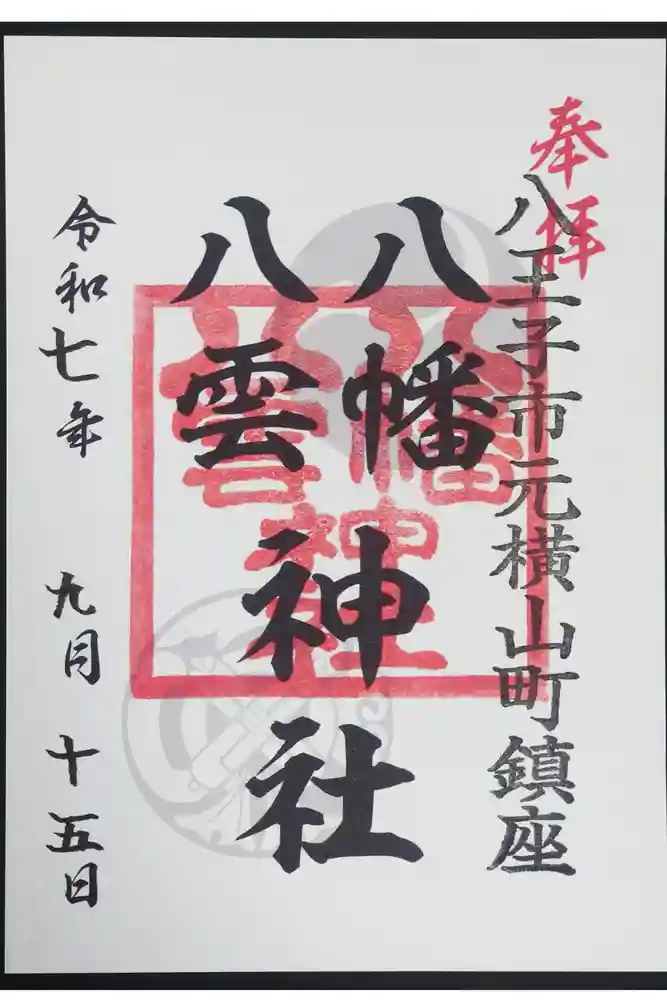 奉拝
八王子市元横山町鎮座
八幡
八雲
神社
令和七年 九月 十五日
八幡
八雲
神社